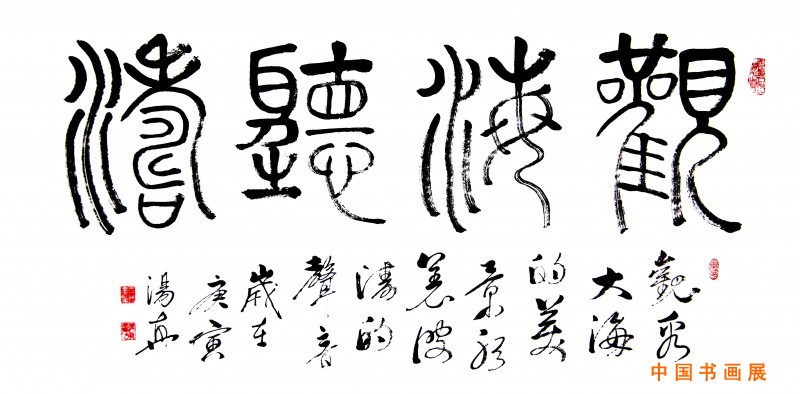 觀海聽濤
觀看
大海
的美
景
着波
濤的
聲音
歲在
庚寅
湯
中国书画展